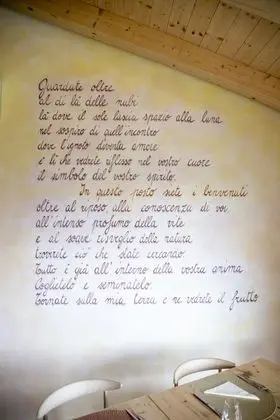 Guardate oltre
al di là delle nubi
là dove il sole lascia spazio alla luna
nel sospiro di quell'incontro
dove l'ignoto diventa amore
e lì che vedrete riflesso nel vostro cuore
il simbolo del vostro spirito.
In questo posto siete i benvenuti
oltre al riposo, alla conoscenza di voi
all'intenso profumo della vite
e al soave risveglio della natura
troverete ciò che state cercando.
Tutto è già all'interno della vostra anima
Coglietelo e seminatelo.
Tornate sulla mia terra e ne vedrete il frutto